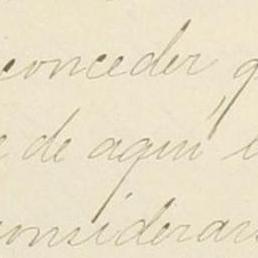 conceder q
e de aquí
consideran